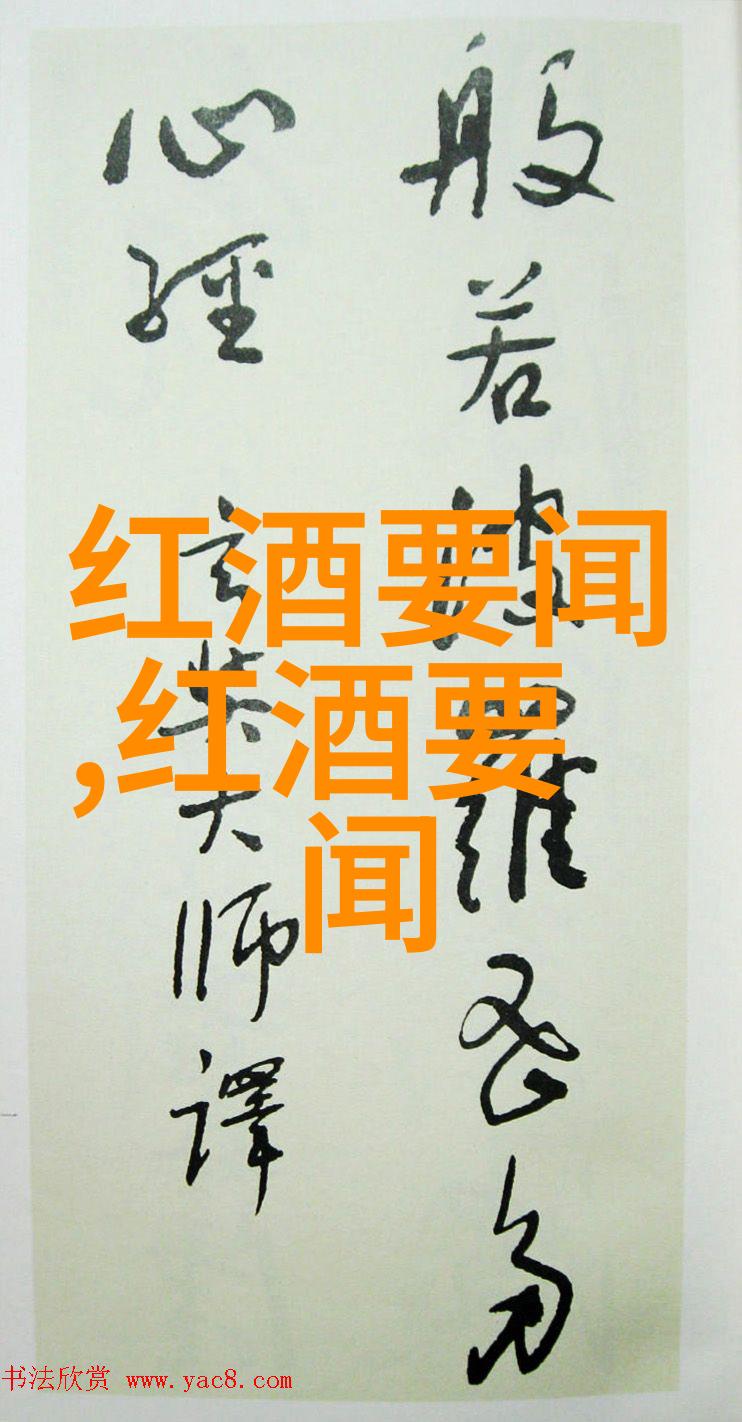 般若波羅蜜多
心經 玄奘大師譯
红酒要闻
,红酒要
闻
书法欣赏 www.yac8.com